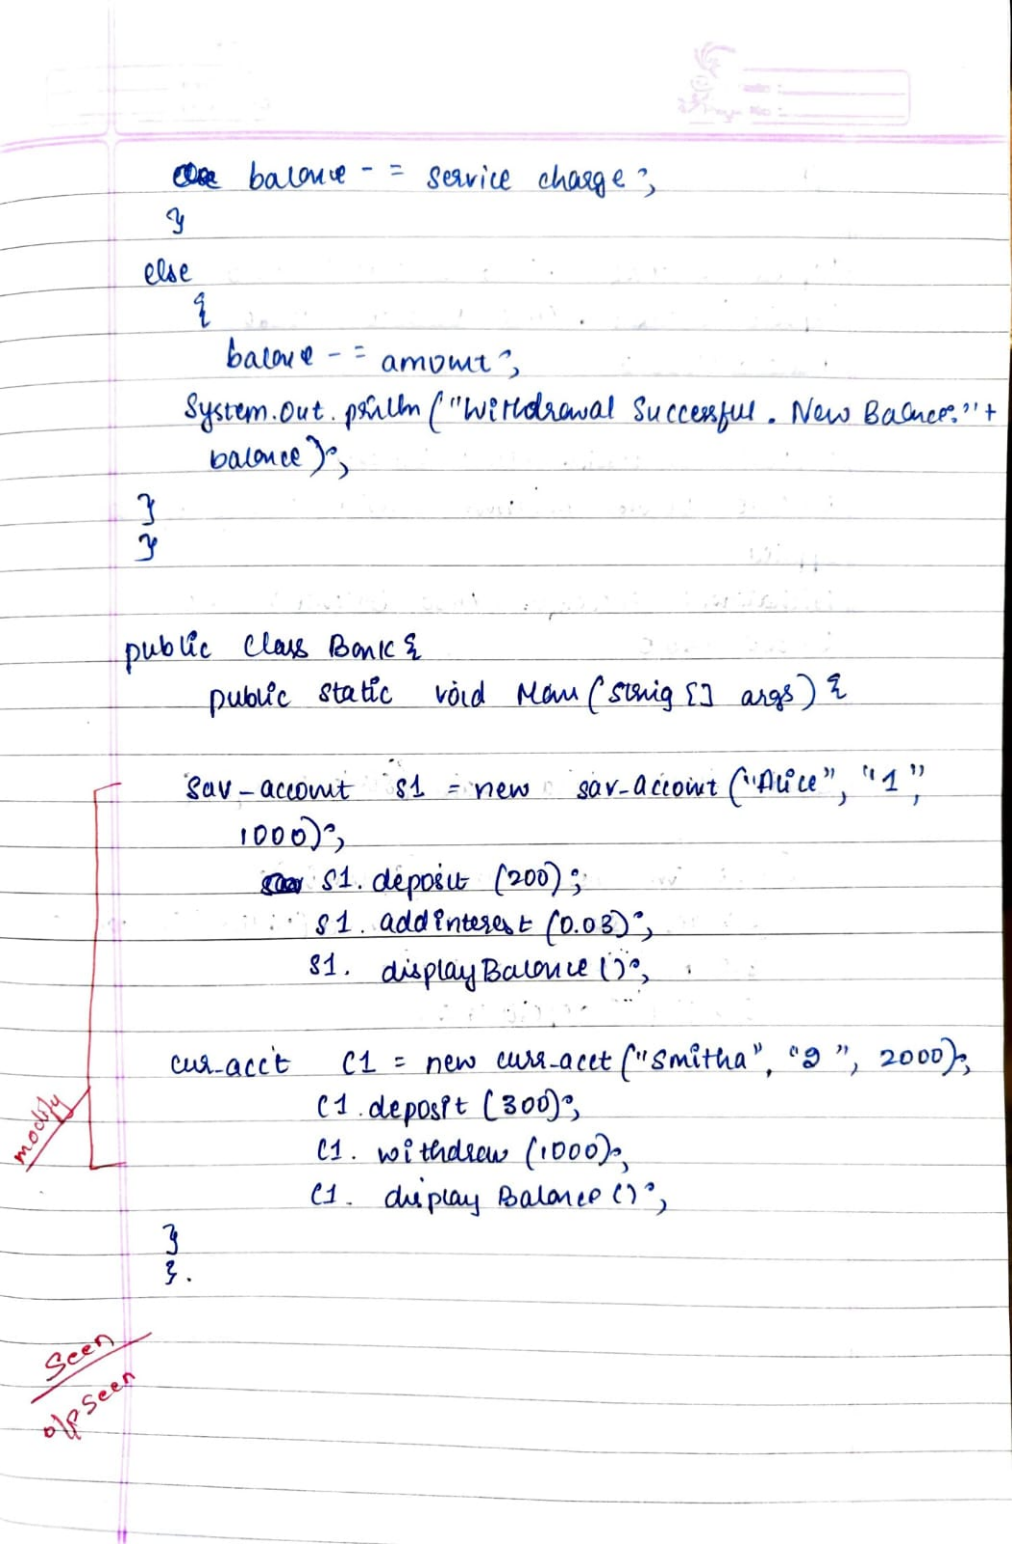 balance - = service charge;
}
else
{
balance - = amount;
System.out.println("Withdrawal Successful. New Balance:"+
balance);
}
}
public class Bank {
public static void Main(String [] args) {
Sav-account s1 = new sav-account("Alice", "1",
1000);
s1. deposit (200);
s1. addinterest (0.03);
s1. displayBalance ();
cur-acct C1 = new curr-acct ("Smitha", "2", 2000);
C1. deposit (300);
C1. withdraw (1000);
C1. display Balance ();
modify
}
}.
Seen
o/p seen